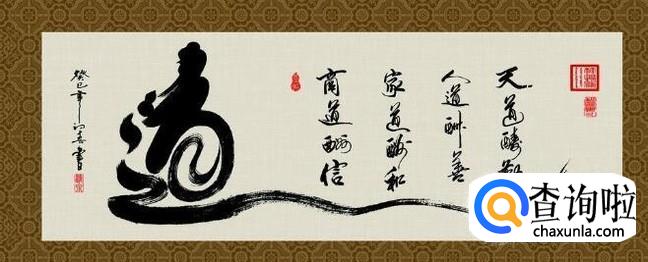 天道酬勤
人道酬善
家道酬和
商道酬信
道
癸巳年書
查询啦
chaxunla.com